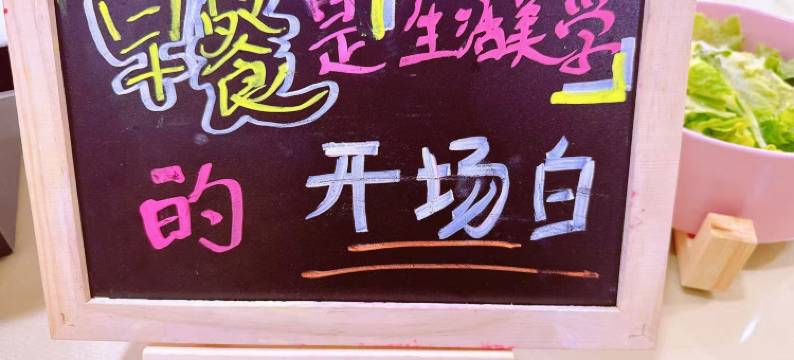 早餐是生活美学
的开场白